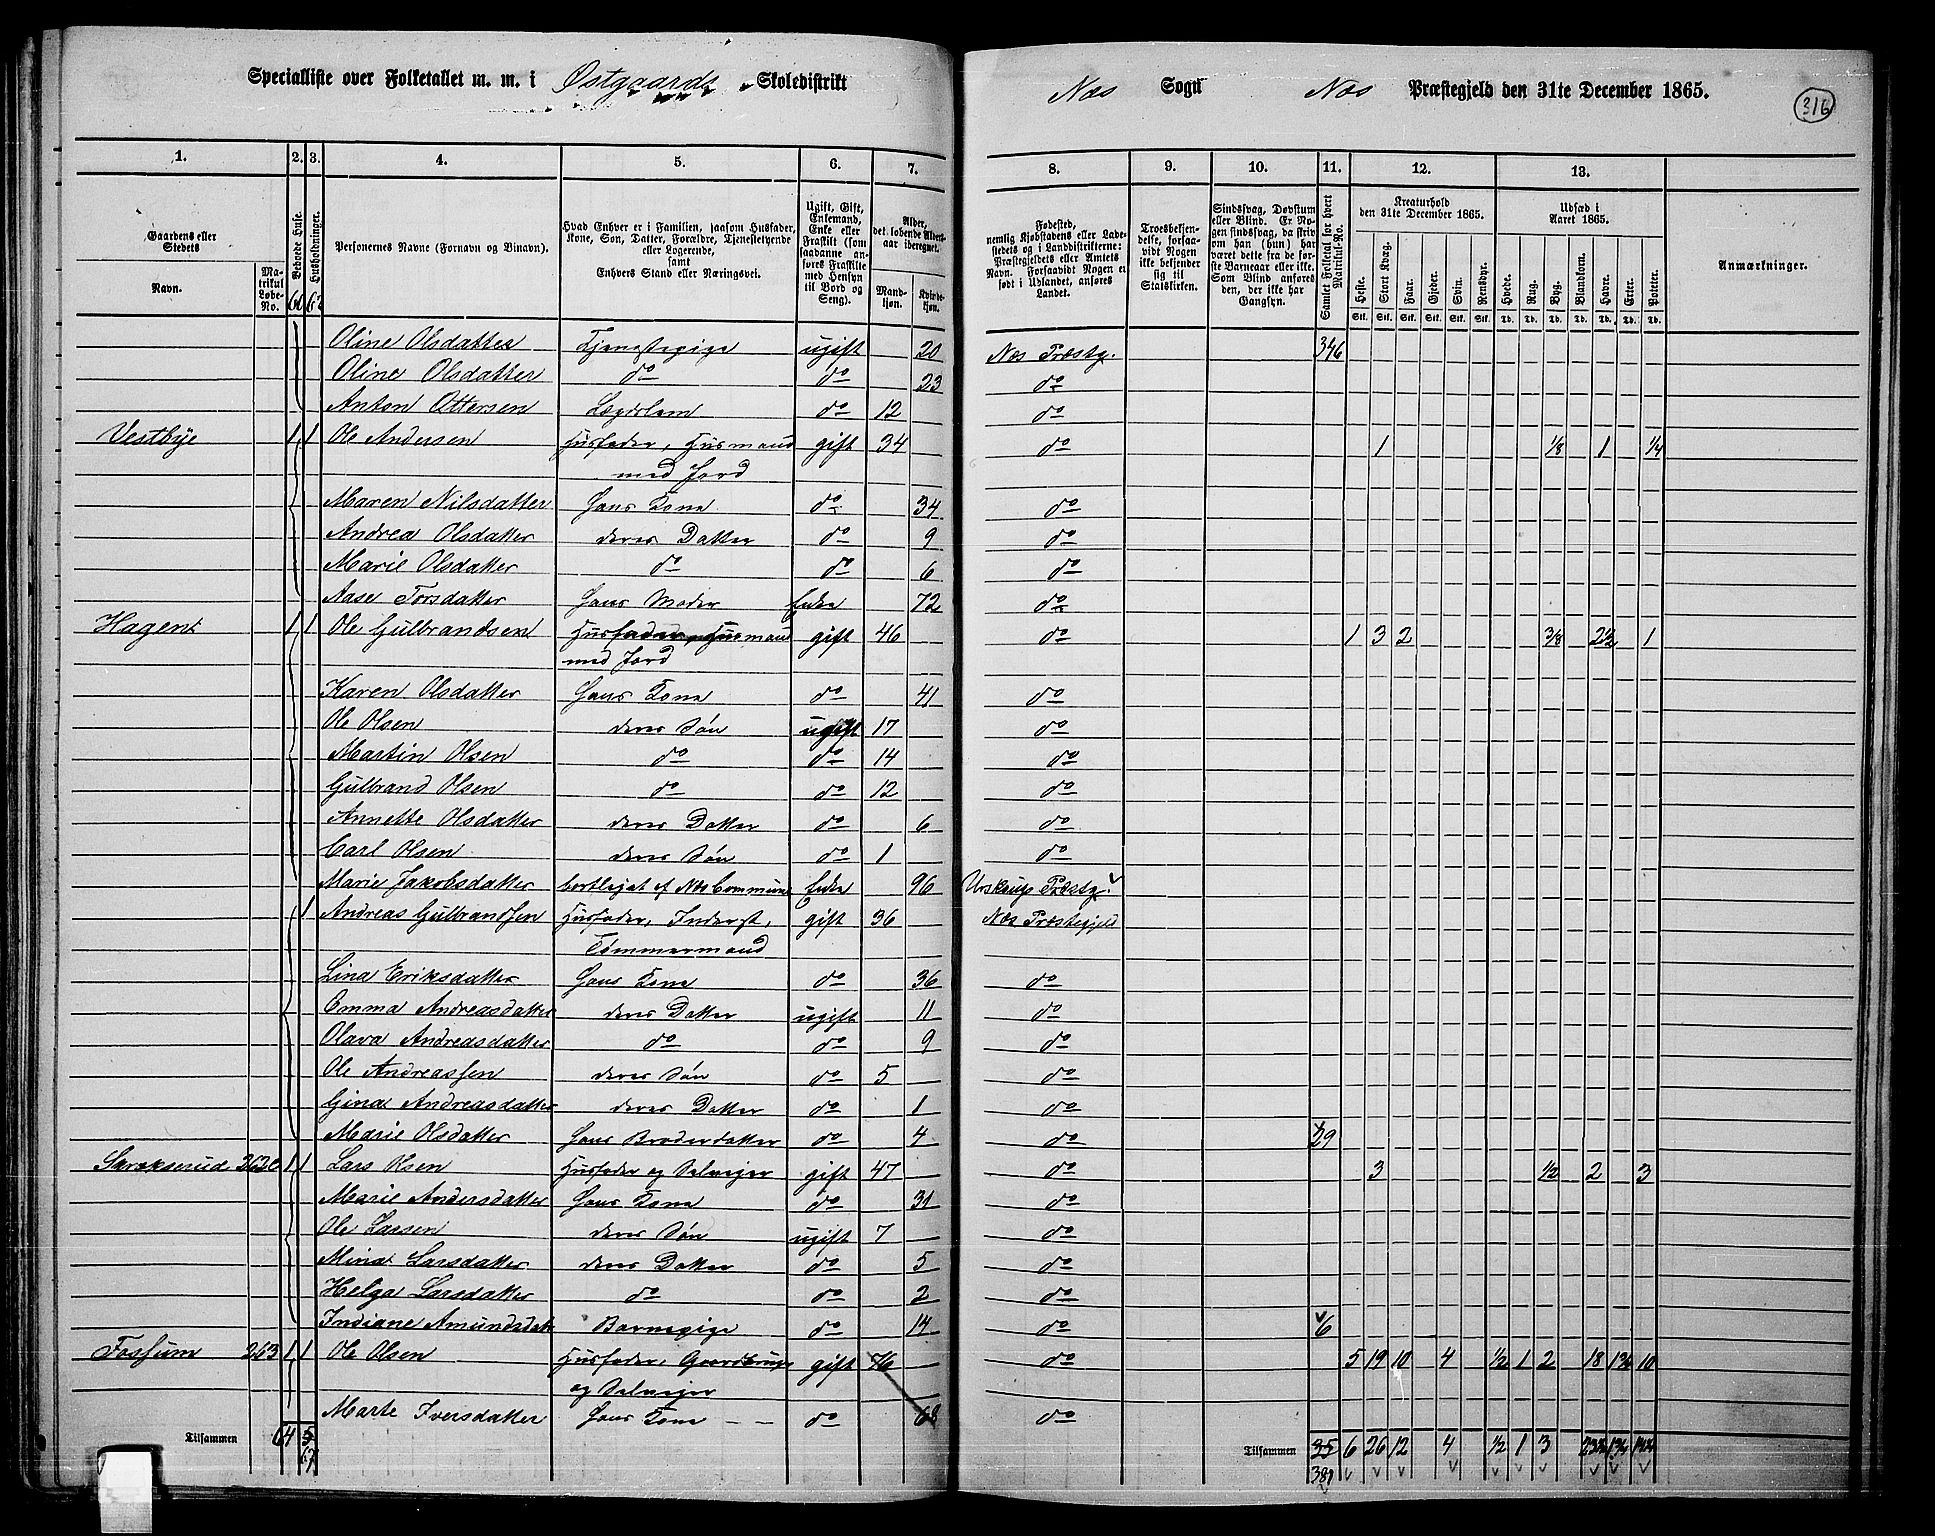 Specialliste over Folketallet m. m. i Østgaards Skoledistrikt
Næs Sogn Næs Præstegjeld den 31te December 1865.
316
1. 2. 3. 4. 5. 6. 7. 8. 9. 10. 11. 12. 13.
Gaardens eller Stedets
Navn.
Matrikul Løbe-No.
Beboede Huse.
Husholdninger.
Personernes Navne (Fornavn og Tilnavn).
Hvad Enhver er i Familien, saasom Husfader, Kone, Søn, Datter, Forældre, Tjenestetyende eller Logerende, samt Enhvers Stand eller Næringsvei.
Ugift, Gift, Enkemand, Enke eller Fraskilt (som saadanne anføres Fraskilte med Hensyn til Bord og Seng).
Alder, det løbende Alders-aar iberegnet.
Mandkjøn. Kvindekjøn.
Fødested, nemlig Kjøbstadens eller Ladestedets og i Landdistrikterne: Præstegjeldets eller Amtets Navn. Forsaavidt Nogen er født i Udlandet, anføres Landet.
Troesbekjendelse, forsaavidt Nogen ikke bekjender sig til Statskirken.
Sindssvag, Døvstum eller Blind. Er Nogen sindssvag, da skriv om han (hun) har været dette fra de første Barneaar eller ikke. Som Blind anføres den, der ikke har Gangsyn.
Samlet Folketal for hvert Matrikul-No.
Kreaturhold den 31te December 1865.
Heste. Stort Kvæg. Faar. Gjeder. Svin. Rensdyr.
Udsæd i Aaret 1865.
Hvede. Rug. Byg. Blandkorn. Havre. Erter. Poteter.
Anmærkninger.
Oline Olsdatter Tjenestepige ugift 20 Næs Præstg. 346
Oline Olsdatter do do 23 do
Anton Ottersen Lægdslem do 12 do
Vestbye 1 1 Ole Andersen Husfader, Husmand gift 34 do 1 1/8 1 1/4
med Jord
Maren Nilsdatter Hans Kone do 34 do
Andrea Olsdatter deres Datter do 9 do
Marie Olsdatter do do 6 do
Aase Torsdatter Hans Moder Enke 72 do
Hagen 1 1 Ole Gulbrandsen Husfader, Husmand gift 46 do 1 3 2 3/8 2 1/2 1
med Jord
Karen Olsdatter Hans Kone do 41 do
Ole Olsen deres Søn ugift 17 do
Martin Olsen do do 14 do
Gulbrand Olsen do do 12 do
Annette Olsdatter deres Datter do 6 do
Carl Olsen deres Søn do 1 do
Marie Jakobsdatter bortlejet af Næs Commune Enke 96 Urskoug Præstg.
1 Andreas Gulbrandsen Husfader, Inderst, gift 36 Næs Præstegjeld
Tømmermand
Lina Eriksdatter Hans Kone do 36 do
Emma Andreasdatter deres Datter ugift 11 do
Olava Andreasdatter do do 9 do
Ole Andreassen deres Søn do 5 do
Gina Andreasdatter deres Datter do 1 do
Marie Olsdatter Hans Broderdatter do 4 do 29
262 1 1 Lars Olsen Husfader og Selveier gift 47 do 3 1/2 2 3
Marie Andersdatter Hans Kone do 31 do
Ole Larsen deres Søn ugift 7 do
Mina Larsdatter deres Datter do 5 do
Helga Larsdatter do do 2 do
Indiane Amundsdatr Barnepige do 14 do 6
Fossum 263 1 1 Ole Olsen Husfader, Gaardbruger gift 76 do 5 19 10 4 1/2 1 2 18 10
og Selveier
Marte Iversdatter Hans Kone do 68 do
Tilsammen 4 5 Tilsammen 35 6 26 12 4 1/2 1 3
64 67